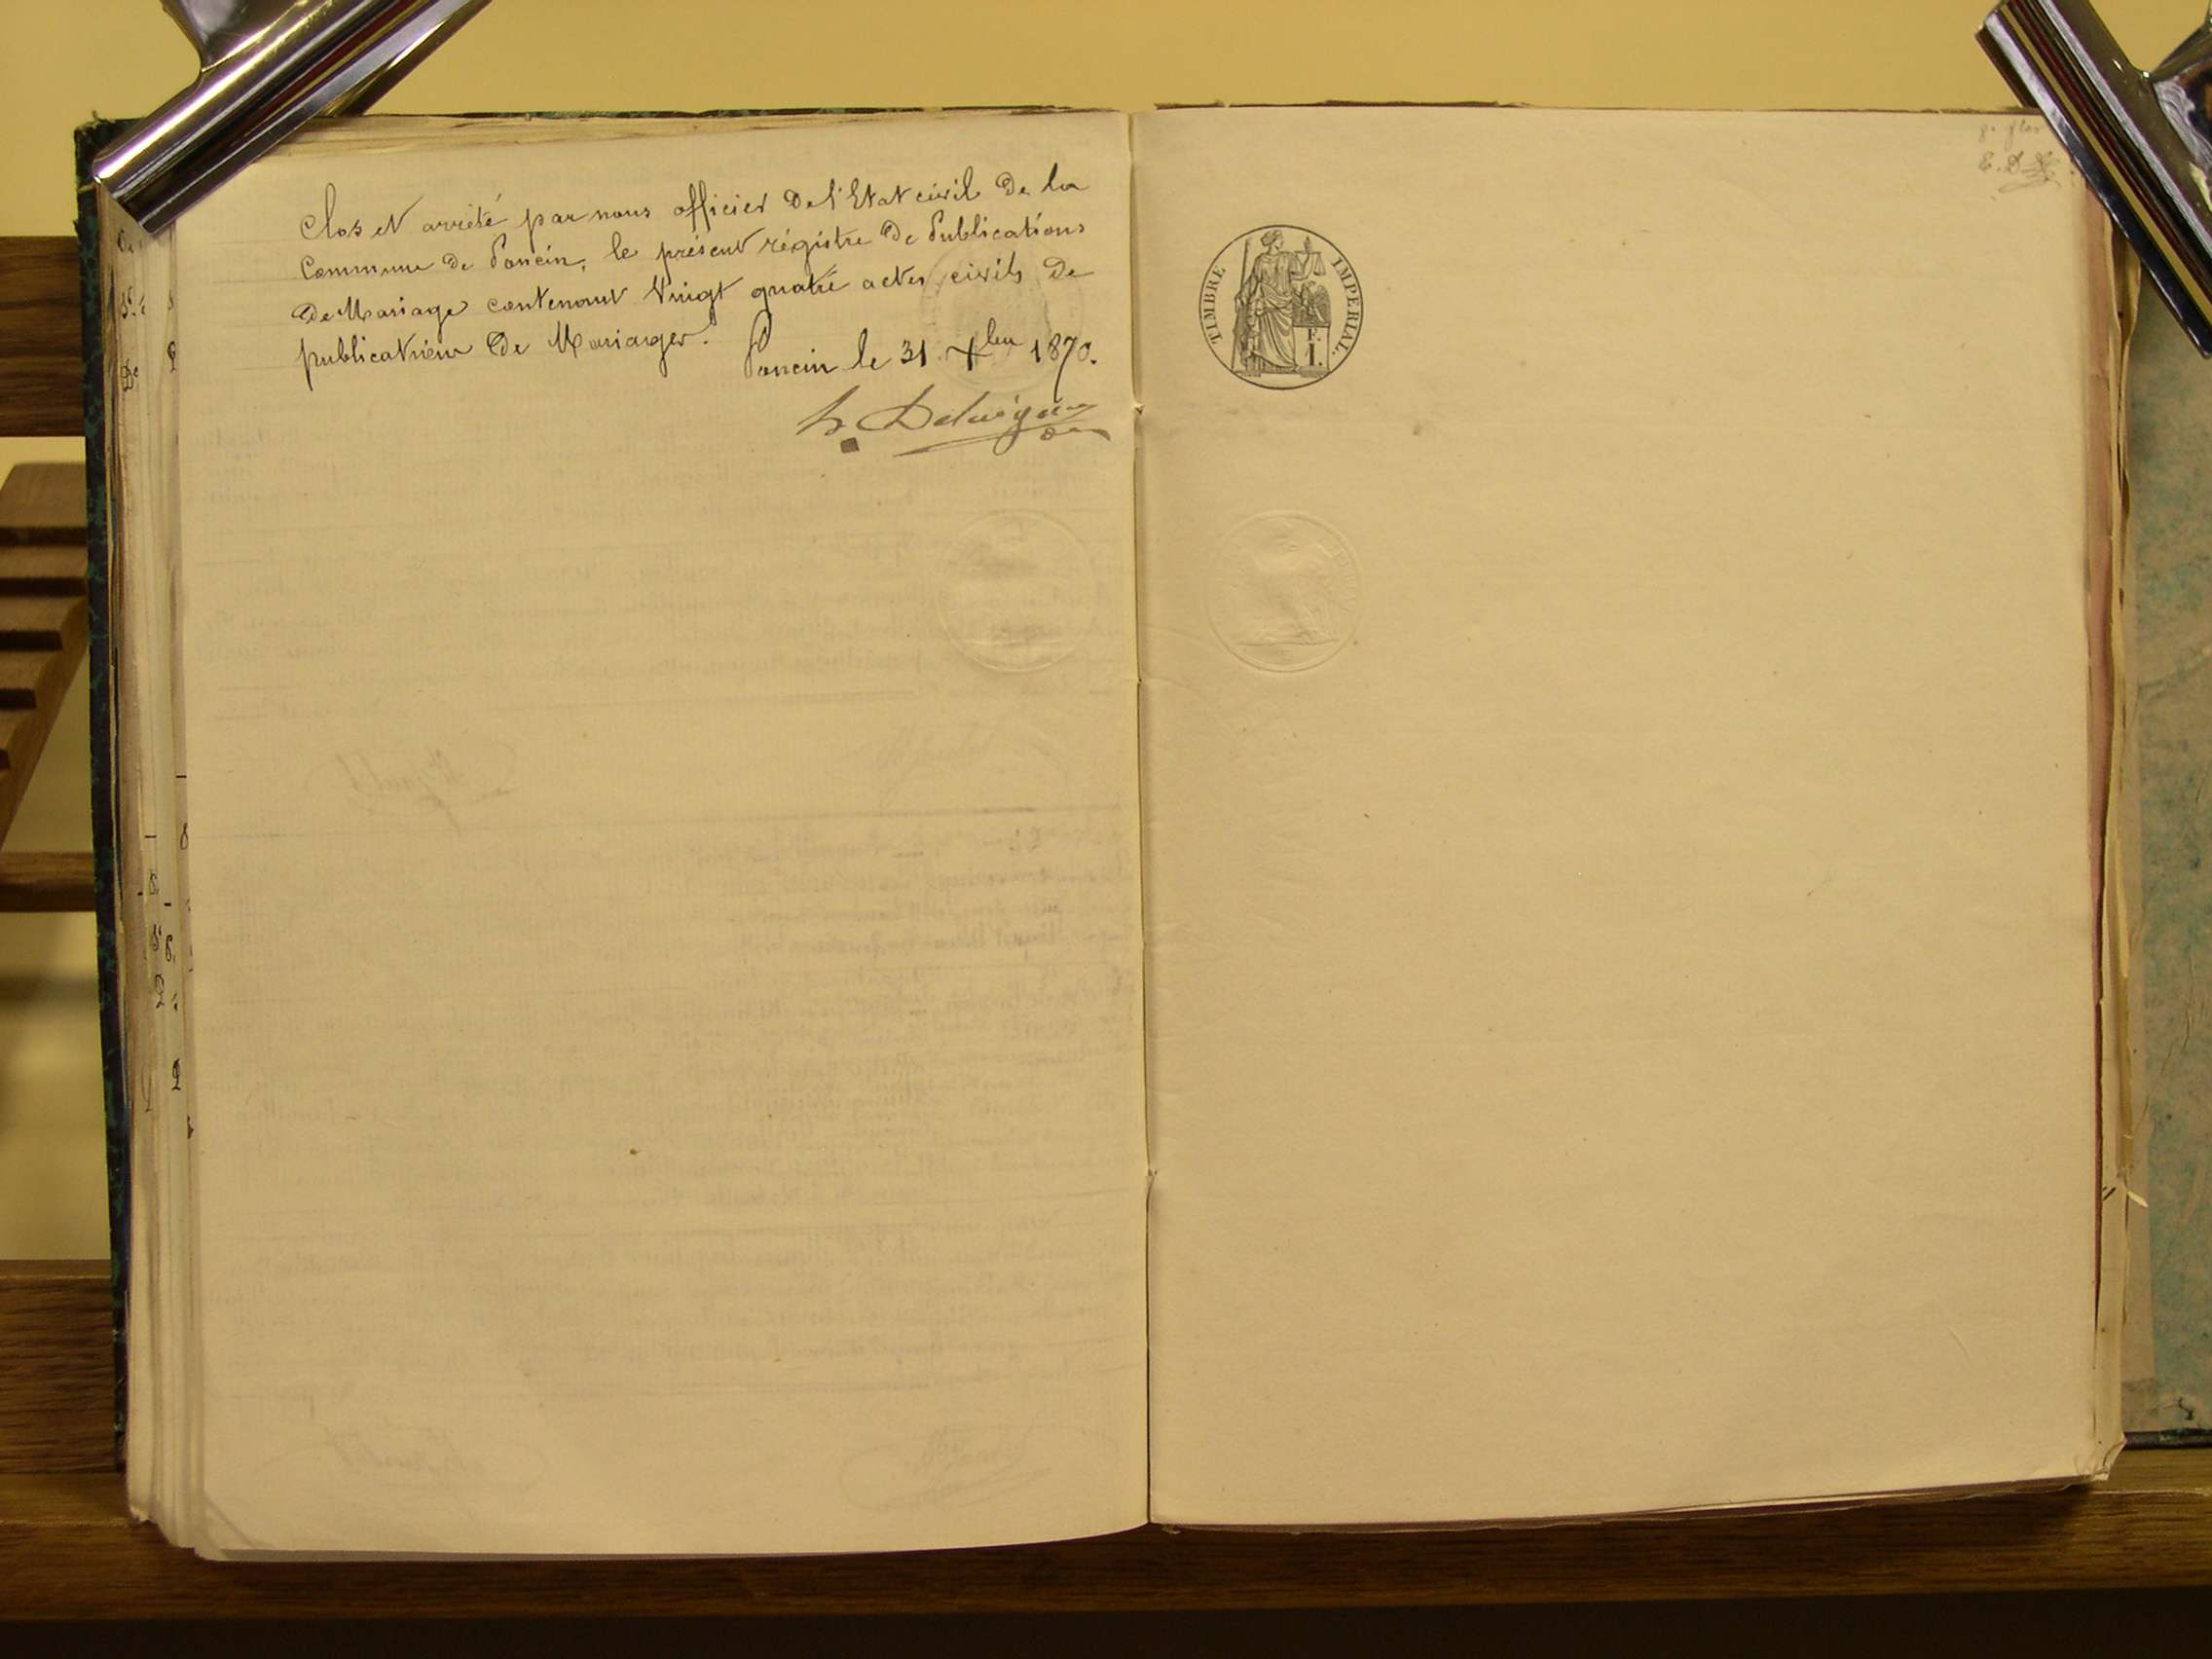 Clos et arrêté par nous officier de l'Etat civil de la
Commune de Poncin, le présent régistre de Publications
de Mariage contenant Vingt quatre actes civils de
publications de Mariages.
Poncin le 31 Xbre 1870.
TIMBRE IMPERIAL.
F.
I.